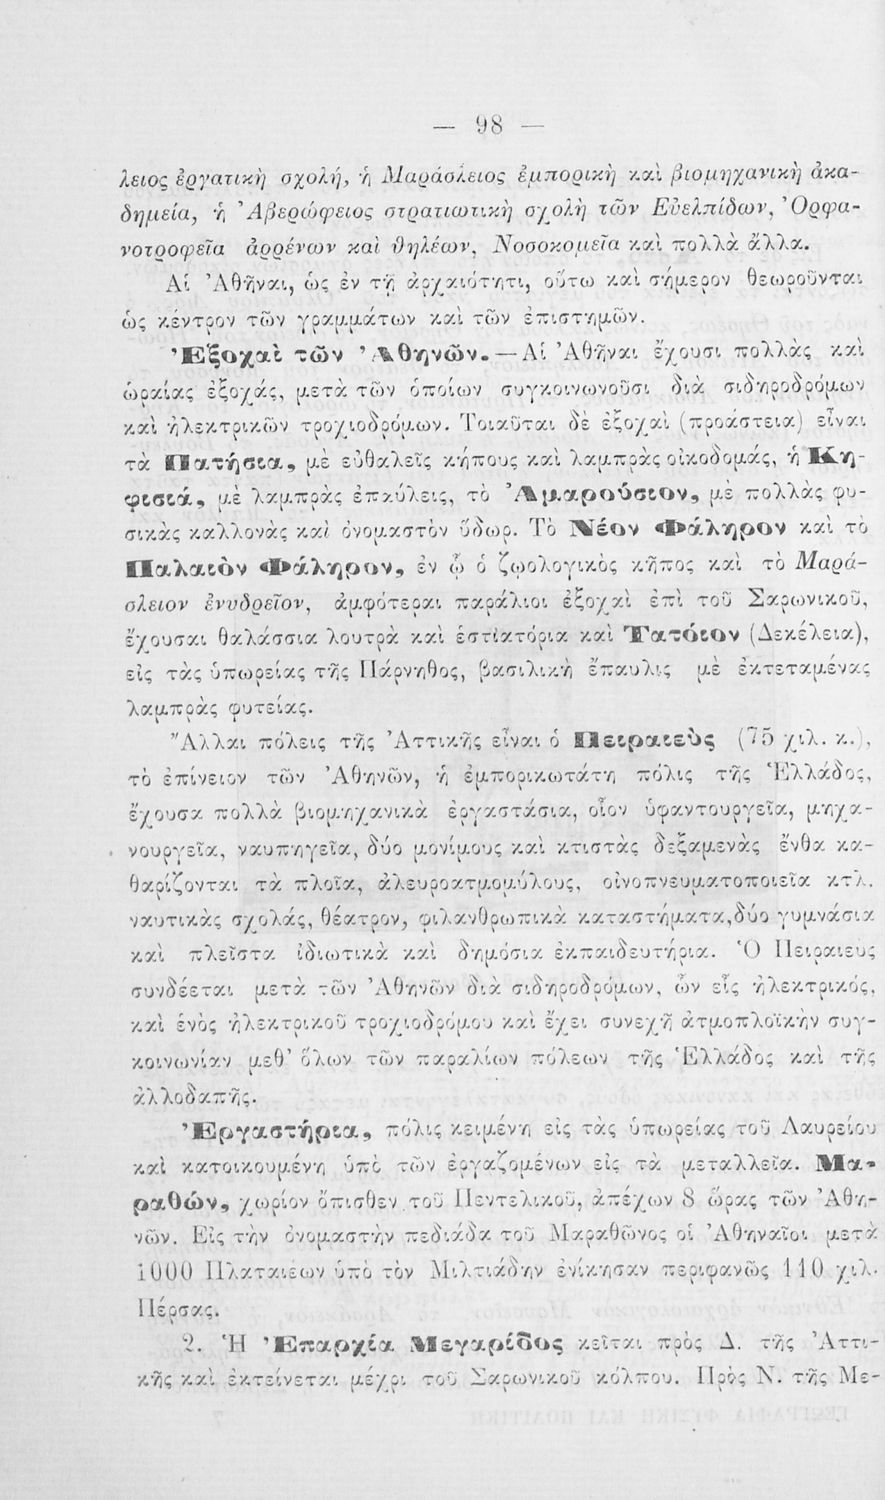 — 98 —
λειος ἐργατικὴ σχολή, ἡ Μαράσλειος ἐμπορικὴ καὶ βιομηχανικὴ ἀκα-
δημεία, ἡ Ἀβερώφειος στρατιωτικὴ σχολὴ τῶν Εὐελπίδων, Ὀρφα-
νοτροφεῖα ἀρρένων καὶ θηλέων, Νοσοκομεῖα καὶ πολλὰ ἄλλα.
Αἱ Ἀθῆναι, ὡς ἐν τῇ ἀρχαιότητι, οὕτω καὶ σήμερον θεωροῦνται
ὡς κέντρον τῶν γραμμάτων καὶ τῶν ἐπιστημῶν.
Ἐξοχαὶ τῶν Ἀθηνῶν.—Αἱ Ἀθῆναι ἔχουσι πολλὰς καὶ
ὡραίας ἐξοχάς, μετὰ τῶν ὁποίων συγκοινωνοῦσι διὰ σιδηροδρόμων
καὶ ἠλεκτρικῶν τροχιοδρόμων. Τοιαῦται δὲ ἐξοχαὶ (προάστεια) εἶναι
τὰ Πατήσια, μὲ εὐθαλεῖς κήπους καὶ λαμπρὰς οἰκοδομάς, ἡ Κη-
φισιά, μὲ λαμπρὰς ἐπαύλεις, τὸ Ἀμαρούσιον, μὲ πολλὰς φυ-
σικὰς καλλονὰς καὶ ὀνομαστὸν ὕδωρ. Τὸ Νέον Φάληρον καὶ τὸ
Παλαιὸν Φάληρον, ἐν ᾧ ὁ ζωολογικὸς κῆπος καὶ τὸ Μαρά-
σλειον ἐνυδρεῖον, ἀμφότεραι παράλιοι ἐξοχαὶ ἐπὶ τοῦ Σαρωνικοῦ,
ἔχουσαι θαλάσσια λουτρὰ καὶ ἑστιατόρια καὶ Τατόιον (Δεκέλεια),
εἰς τὰς ὑπωρείας τῆς Πάρνηθος, βασιλικὴ ἔπαυλις μὲ ἐκτεταμένας
λαμπρὰς φυτείας.
Ἄλλαι πόλεις τῆς Ἀττικῆς εἶναι ὁ Πειραιεὺς (75 χιλ. κ.),
τὸ ἐπίνειον τῶν Ἀθηνῶν, ἡ ἐμπορικωτάτη πόλις τῆς Ἑλλάδος,
ἔχουσα πολλὰ βιομηχανικὰ ἐργαστάσια, οἷον ὑφαντουργεῖα, μηχα-
νουργεῖα, ναυπηγεῖα, δύο μονίμους καὶ κτιστὰς δεξαμενὰς ἔνθα κα-
θαρίζονται τὰ πλοῖα, ἀλευροατμομύλους, οἰνοπνευματοποιεῖα κτλ.
ναυτικὰς σχολάς, θέατρον, φιλανθρωπικὰ καταστήματα,δύο γυμνάσια
καὶ πλεῖστα ἰδιωτικὰ καὶ δημόσια ἐκπαιδευτήρια. Ὁ Πειραιεὺς
συνδέεται μετὰ τῶν Ἀθηνῶν διὰ σιδηροδρόμων, ὧν εἷς ἠλεκτρικός,
καὶ ἑνὸς ἠλεκτρικοῦ τροχιοδρόμου καὶ ἔχει συνεχῆ ἀτμοπλοϊκὴν συγ-
κοινωνίαν μεθ᾽ ὅλων τῶν παραλίων πόλεων τῆς Ἑλλάδος καὶ τῆς
ἀλλοδαπῆς.
Ἐργαστήρια, πόλις κειμένη εἰς τὰς ὑπωρείας τοῦ Λαυρείου
καὶ κατοικουμένη ὑπὸ τῶν ἐργαζομένων εἰς τὰ μεταλλεῖα. Μα-
ραθών, χωρίον ὄπισθεν τοῦ Πεντελικοῦ, ἀπέχων 8 ὥρας τῶν Ἀθη-
νῶν. Εἰς τὴν ὀνομαστὴν πεδιάδα τοῦ Μαραθῶνος οἱ Ἀθηναῖοι μετὰ
1000 Πλαταιέων ὑπὸ τὸν Μιλτιάδην ἐνίκησαν περιφανῶς 110 χιλ.
Πέρσας.
2. Ἡ Ἐπαρχία Μεγαρίδος κεῖται πρὸς Δ. τῆς Ἀττι-
κῆς καὶ ἐκτείνεται μέχρι τοῦ Σαρωνικοῦ κόλπου. Πρὸς Ν. τῆς Με-